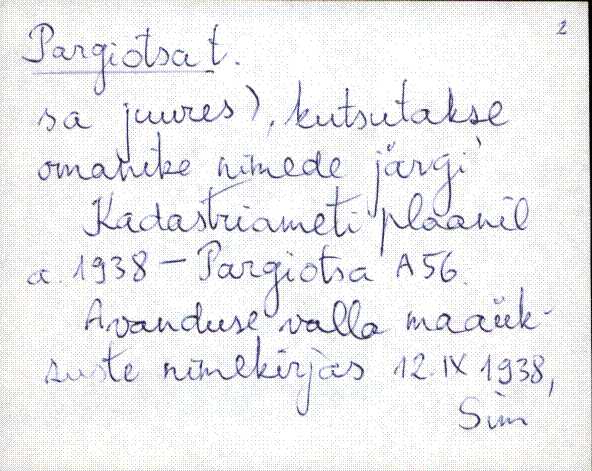 2
Pargiotsa t.
sa juures), kutsutakse
omanike nimede järgi
Kadastriameti plaanil
a. 1938 – Pargiotsa A 56.
Avanduse valla maaük-
suste nimekirjas 12.IX 1938,
Sim